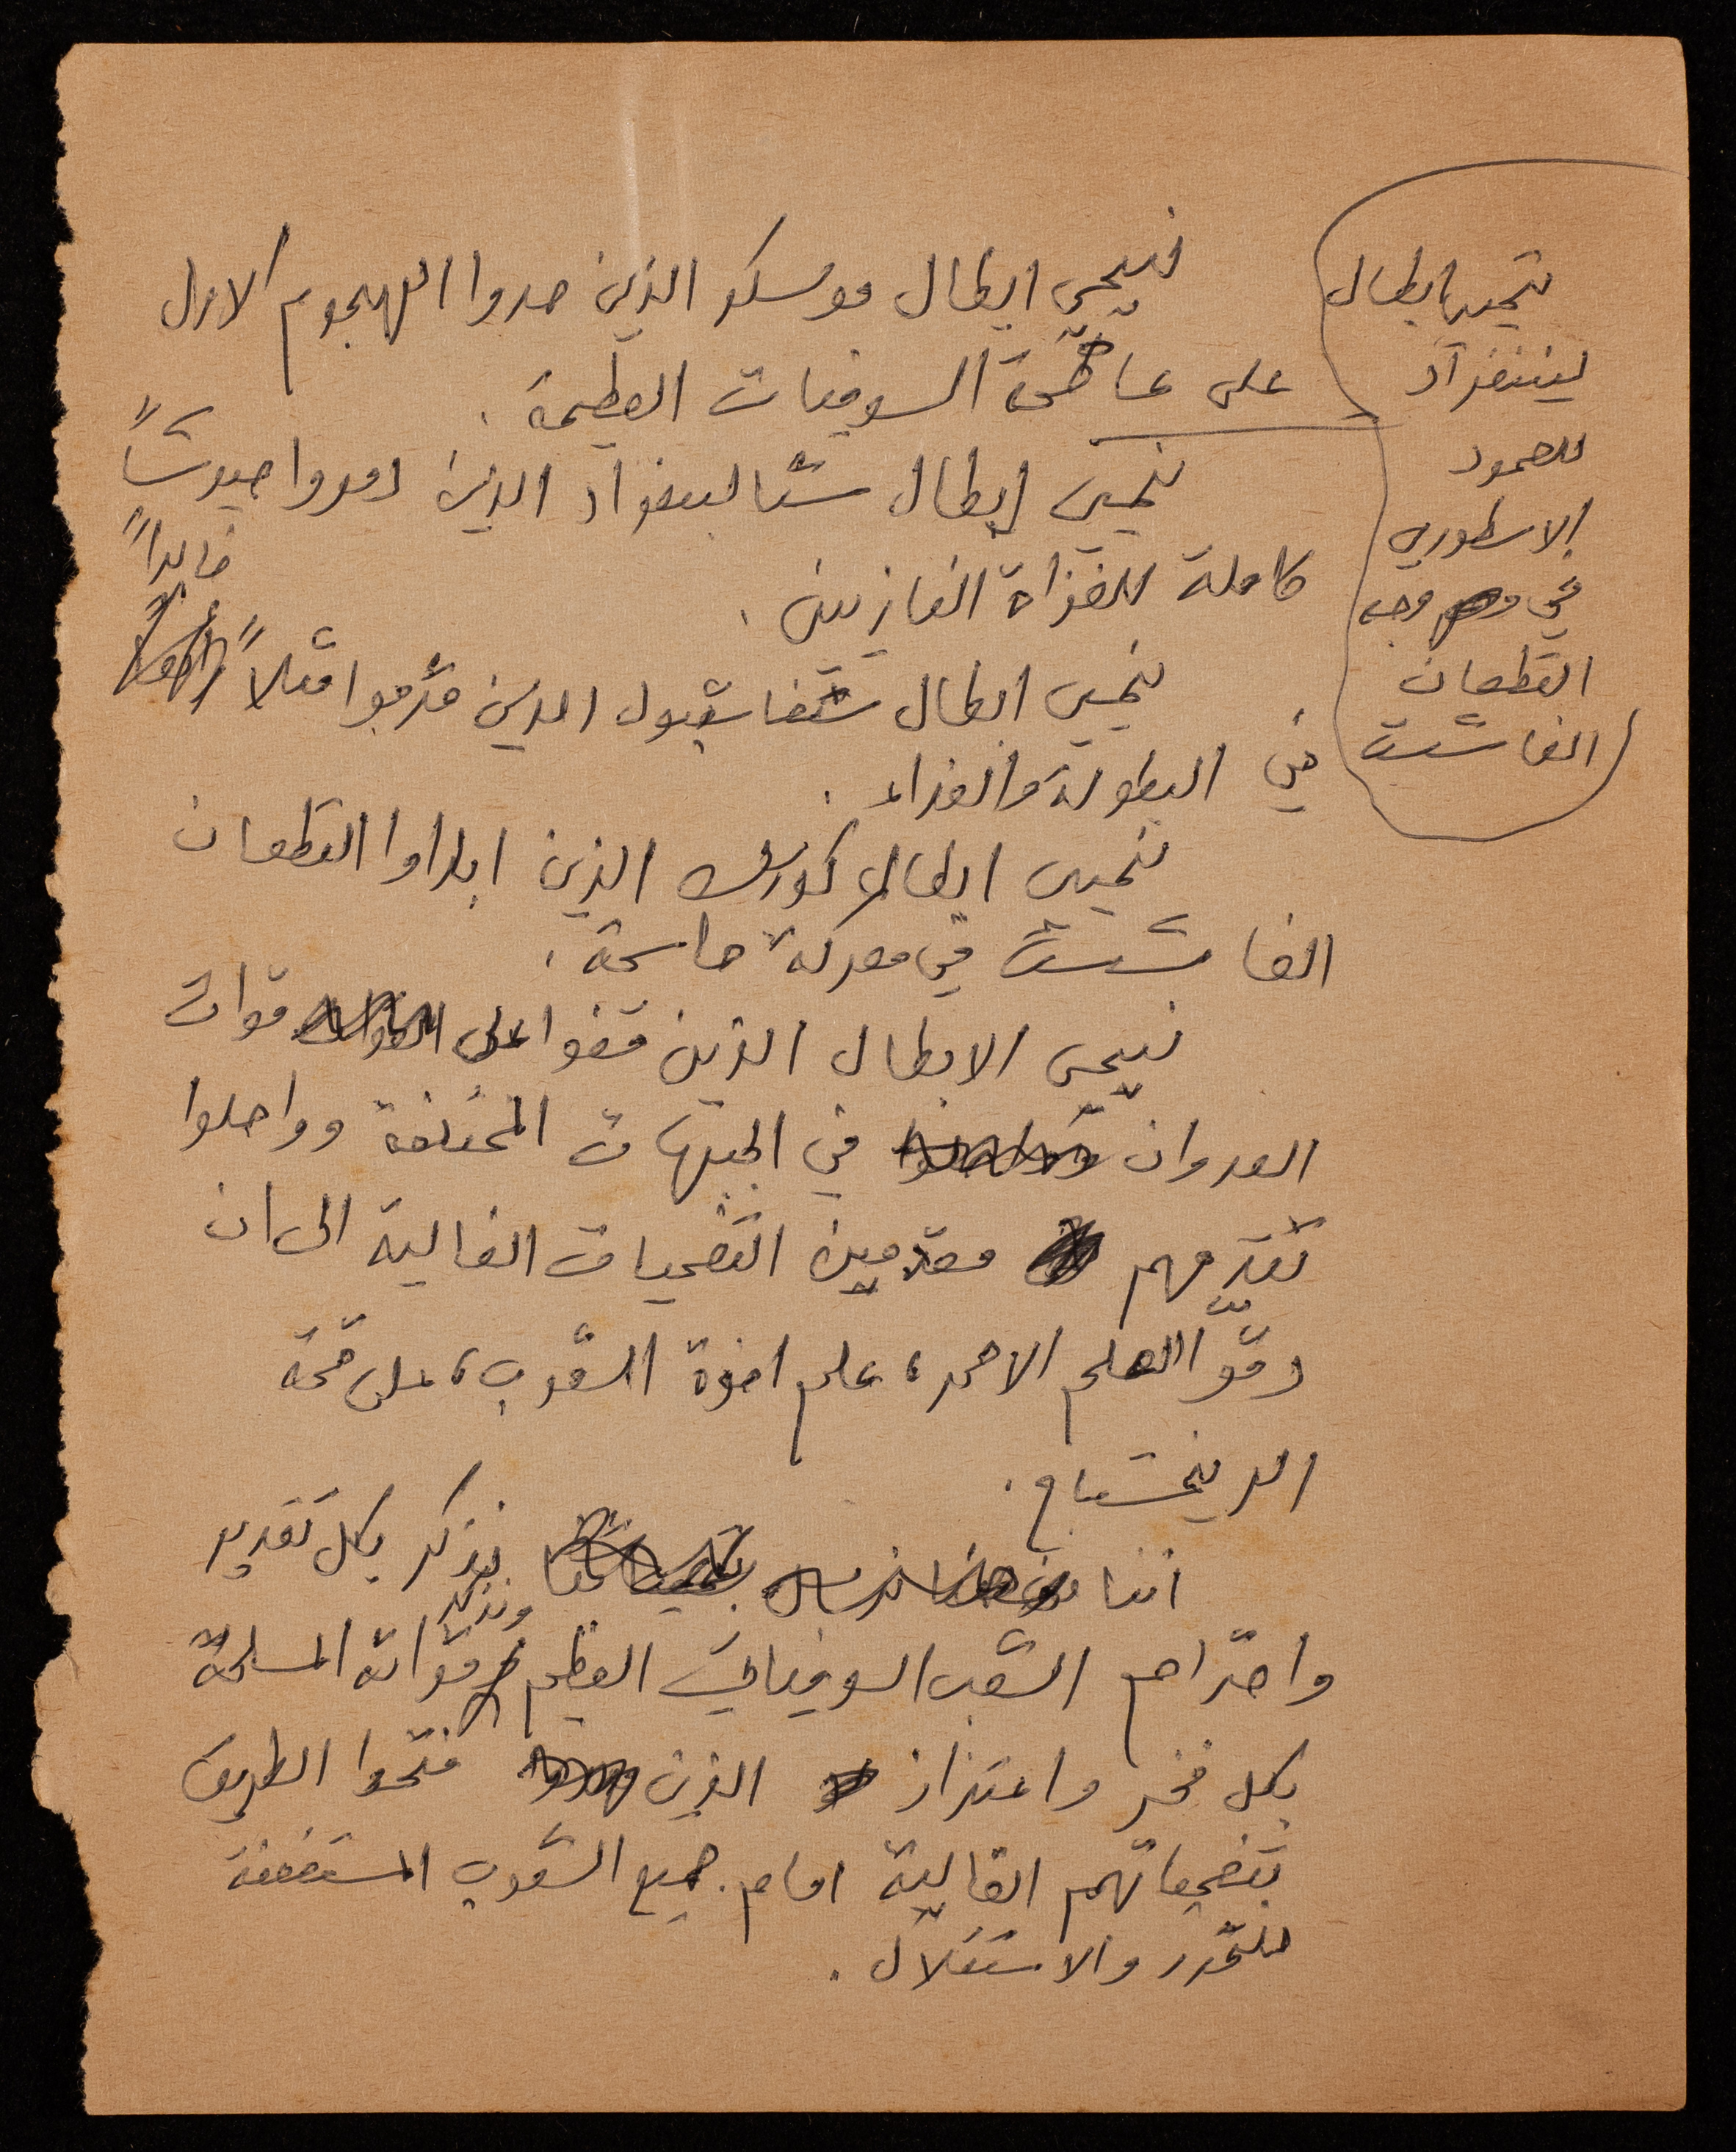 نحيي ابطال موسكو الذين صدوا الهجوم الاول
على عاصمة السوفيات العظيمة .
نحيي ابطال
ليننغراد
للصمود
الاسطوري
في وجه
القطعان
الفاشست
نحيي ابطال ستالينغراد الذين دمروا جيوشاً
كاملة للغزاة النازيين .
نحيي ابطال ستفاستبول الذين قدموا مثلاً خالداً
في البطولة والفداء .
نحيي ابطال كورسك الذين ابادوا القطعان
الفاشست في معركة حاسمة .
نحيي الابطال الذين قضوا على قوات
العدوان في الجبهات المختلفة وواصلوا
تقدمهم مقدمين التضحيات الغالية الى ان
دقوا العلم الاحمر، علم اخوة الشعوب، على قمة
الريخستاغ .
اننا نذكر بكل تقدير
واحترام الشعب السوفياتي العظيم ونذكر قواته المسلحة
بكل فخر واعتزاز الذين فتحوا الطريق
بتضحياتهم الغالية امام جميع الشعوب المستضعفة
للتحرر والاستقلال .